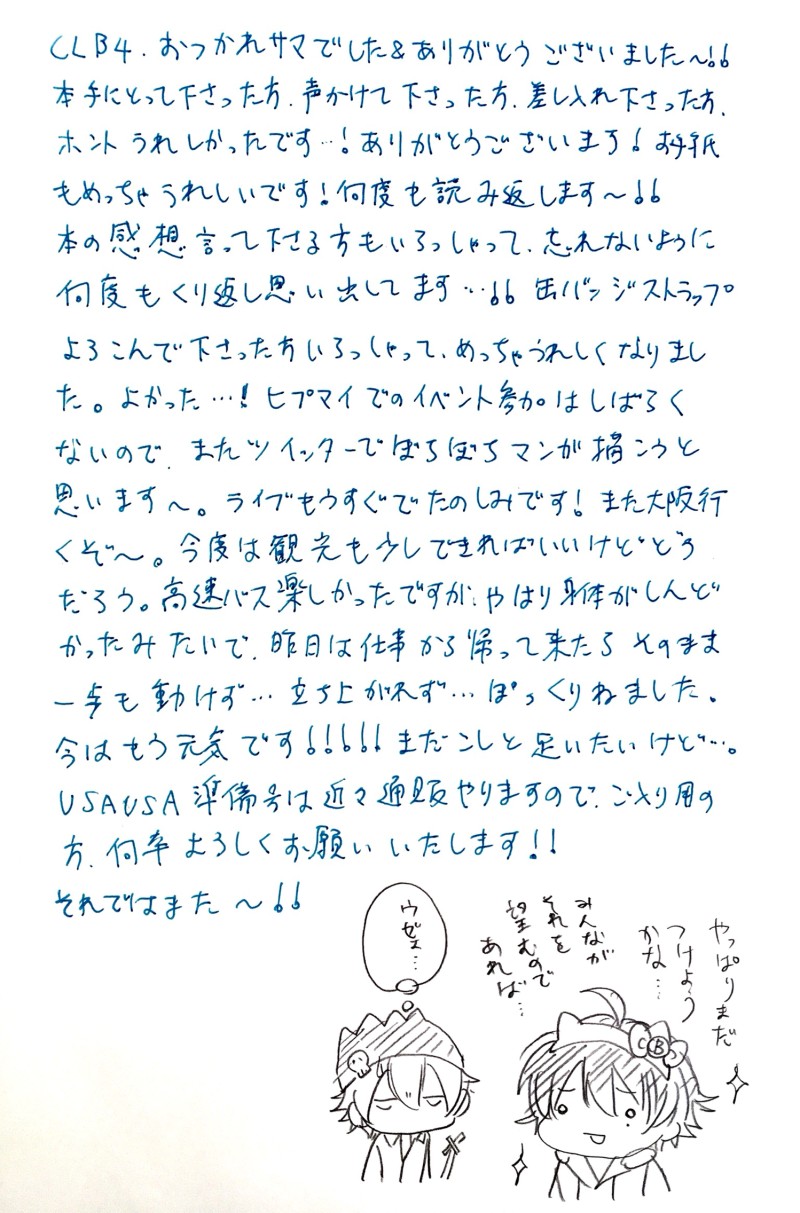 CLB4. おつかれサマでした&ありがとうございました〜!!
本手にとって下さった方、声かけて下さった方、差し入れ下さった方、
ホントうれしかったです…!ありがとうございます!お手紙
もめっちゃうれしいです!何度も読み返します〜!!
本の感想言って下さる方もいらっしゃって、忘れないように
何度もくり返し思い出してます…!! 缶バッジストラップ
よろこんで下さった方いらっしゃって、めっちゃうれしくなりまし
た。よかった…!ヒプマイでのイベント参加はしばらく
ないので、またツイッターでぼちぼちマンが描こうと
思います〜。ライブもうすぐでたのしみです!また大阪行
くぞ〜。今度は観光も少しできればいいけどどう
だろう。高速バス楽しかったですが、やはり身体がしんど
かったみたいで、昨日は仕事から帰って来たらそのまま
一歩も動けず…立ち上がれず…ぽっくりねました。
今はもう元気です!!!!! まだこしと足いたいけど…。
USAUSA準備号は近々通販やりますので、ご入り用の
方、何卒よろしくお願いいたします!!
それではまた〜!!
やっぱりまだ
つけよう
かな…
みんなが
それを
望むので
あれば…
ウゼェ…
CB